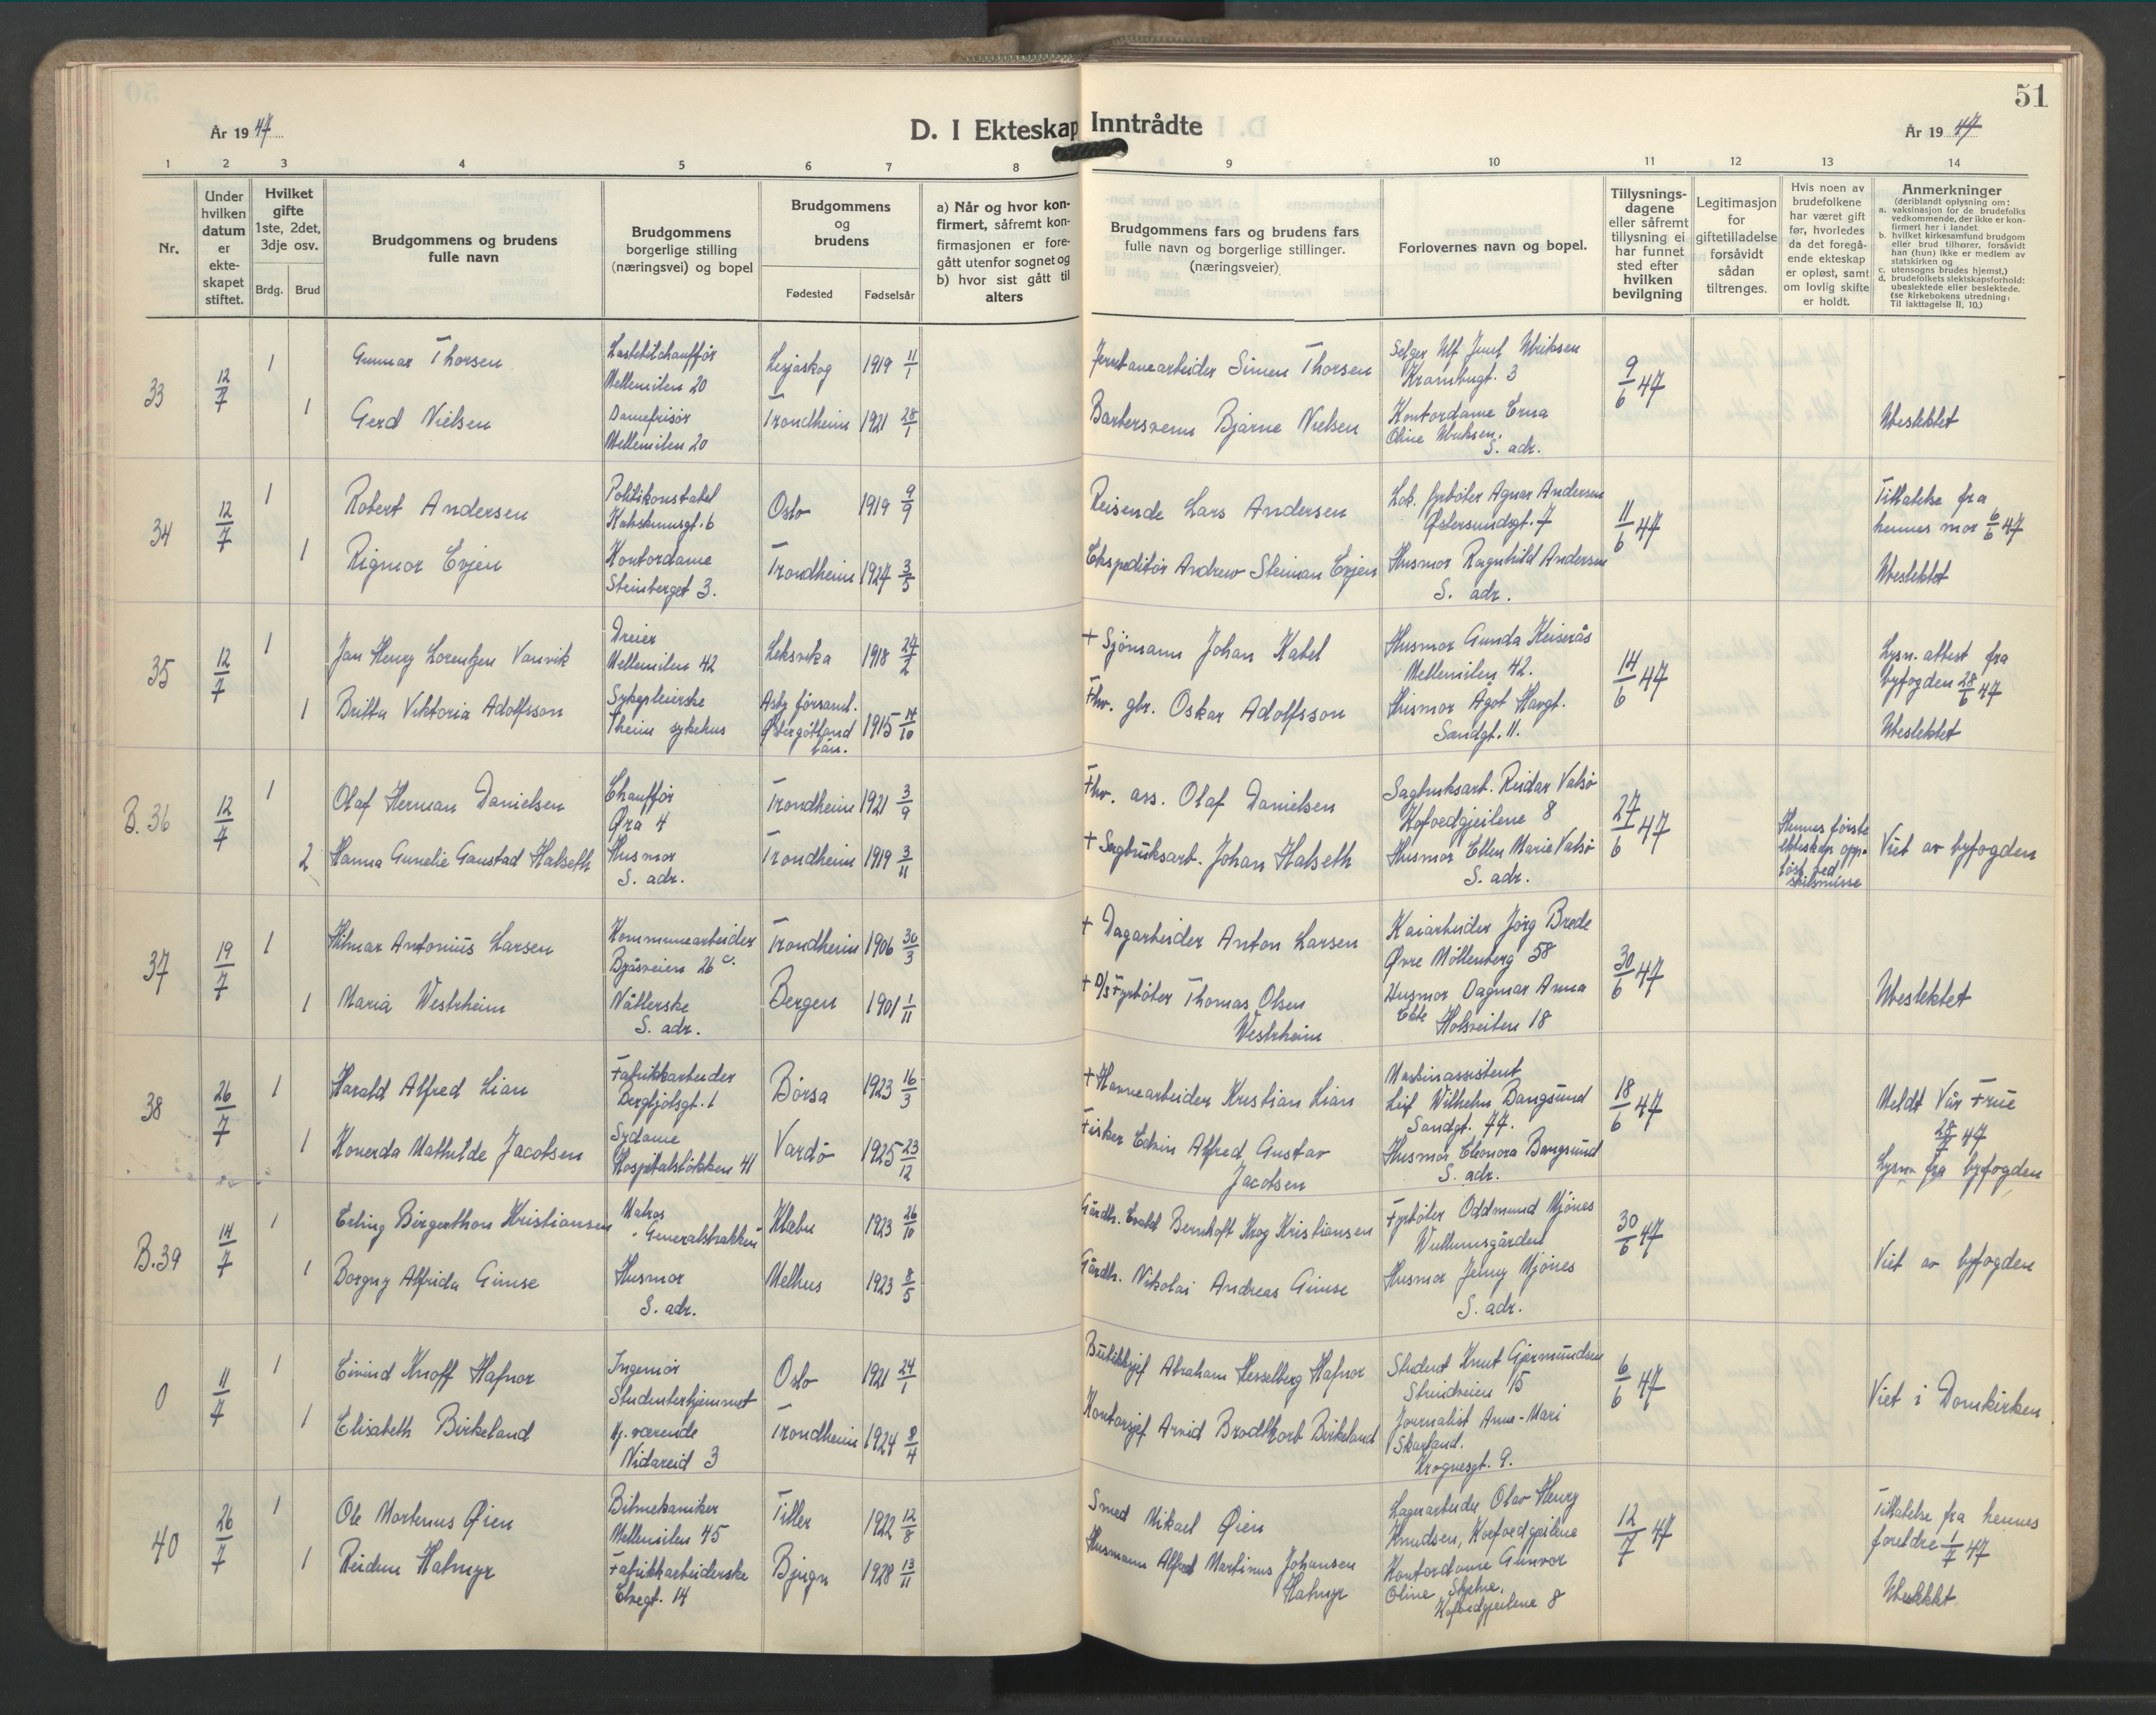 51
År 1947
D. I Ekteskap Inntrådte
År 1947
1 2 3 4 5 6 7 8 9 10 11 12 13 14
Nr.
Under
hvilken
datum
er
ekte-
skapet
stiftet.
Hvilket
gifte
1ste, 2det,
3dje osv.
Brdg.
Brud
Brudgommens og brudens
fulle navn
Brudgommens
borgerlige stilling
(næringsvei) og bopel
Brudgommens
og
brudens
Fødested
Fødselsår
a) Når og hvor kon-
firmert, såfremt kon-
firmasjonen er fore-
gått utenfor sognet og
b) hvor sist gått til
alters
Brudgommens fars og brudens fars
fulle navn og borgerlige stillinger.
(næringsveier)
Forlovernes navn og bopel.
Tillysnings-
dagene
eller såfremt
tillysning ei
har funnet
sted efter
hvilken
bevilgning
Legitimasjon
for
giftetilladelse
forsåvidt
sådan
tiltrenges.
Hvis noen av
brudefolkene
har været gift
før, hvorledes
da det foregå-
ende ekteskap
er opløst, samt
om lovlig skifte
er holdt.
Anmerkninger
(deriblandt oplysning om:
a. vaksinasjon for de brudefolks
vedkommende, der ikke er kon-
firmert her i landet
b. hvilket kirkesamfund brudgom
eller brud tilhører, forsåvidt
han (hun) ikke er medlem av
statskirken og
c. utensogns brudes hjemst.)
d. brudefolkets slektskapsforhold:
ubeslektede eller beslektede.
(se kirkebokens utredning:
Til iakttagelse II, 10.)
33
12/7
1
Gunnar Thorsen
Lastebilchauffør
Mellemilen 20
Lesjaskog
1919 11/1
1
Gerd Nielsen
Damefrisør
Mellemilen 20
Trondheim
1921 28/1
Jernbanearbeider Simen Thorsen
Barbersvenn Bjarne Nielsen
Selger Ulf Juul Ulriksen
Krambugt. 3
Kontordame Erna
Oline Ulriksen.
S. adr.
9/6 47
Ubeslektet
34
12/7
1
Robert Andersen
Politikonstabel
Oslo
1919 9/9
1
Rigmor Evjen
Kontordame
Steinberget 3.
Trondheim
1927 3/5
Reisende Lars Andersen
Ekspeditør Andrew Steinan Evjen
Lok. fyrbøter Agnar Andersen
Østersundsgt. 7
Husmor Ragnhild Andersen
S. adr.
11/6 47
Tillatelse fra
hennes mor 6/6 47
Ubeslektet
35
12/7
1
Jan Henry Lorentzen Vanvik
Dreier
Mellemilen 42
Leksvika
1918 24/2
1
Britta Viktoria Adolfsson
Sykepleierske
Theim sykehus
Asby församl.
Östergötland
län.
1915 14/10
+ Sjömann Johan Kabel
Fhv. gbr. Oskar Adolfsson
Husmor Gunda Keiserås
Mellemilen 42.
Husmor Ågot Haugt.
Sandgt. 11.
14/6 47
Lysn. attest fra
byfogden 28/6 47
Ubeslektet
B. 36
12/7
1
Olaf Herman Danielsen
Chauffør
Øra 4
Trondheim
1921 3/9
2
Hanna Gunelie Gaustad Halseth
Husmor
S. adr.
Trondheim
1919 3/11
Fhv. ass. Olaf Danielsen
+ Sagbruksarb. Johan Halseth
Sagbruksarb. Reidar Valsø
Kofoedgjeilene 8
Husmor Ellen Marie Valsø
S. adr.
27/6 47
Hennes første
ekteskap opp-
løst ved
skilsmisse
Viet av byfogden
37
19/7
1
Hilmar Antonius Larsen
Kommunearbeider
Byåsveien 26 c.
Trondheim
1906 30/3
1
Maria Westrheim
Nåtlerske
S. adr.
Bergen
1901 1/11
+ Dagarbeider Anton Larsen
+ D/s Fyrbøter Thomas Olsen
Westrheim
Kaiarbeider Jørg Brede
Øvre Möllenberg 58
Husmor Dagmar Anna
Ekle Holsveiten 18
30/6 47
Ubeslektet
38
26/7
1
Harald Alfred Lian
Fabrikkarbeider
Bergljotsgt. 1
Börsa
1923 16/3
1
Konerda Mathilde Jacobsen
Sydame
Hospitalsløkken 41
Vardö
1925 23/12
+ Havnearbeider Kristian Lian
Fisker Edvin Alfred Gustav
Jacobsen
Maskinassistent
Leif Wilhelm Bangsund
Sandgt. 77.
Husmor Eleonora Bangsund
S. adr.
18/6 47
Meldt Vår Frue
28/7 47
Lysn. fra byfogden
B. 39
14/7
1
Erling Birgerthon Kristiansen
Matros
"Generalbrakken"
Klæbu
1923 26/10
1
Borgny Alfrida Gimse
Husmor
S. adr.
Melhus
1923 8/5
Gårdbr. Evald Bernhoft Krog Kristiansen
Gårdbr. Nikolai Andreas Gimse
Fyrbøter Oddmund Mjönes
Wullumsgården
Husmor Jenny Mjönes
S. adr.
30/6 47
Viet av byfogden
0
11/7
1
Eivind Knoff Hafnor
Ingeniør
Studenterhjemmet
Oslo
1921 24/1
1
Elisabeth Birkeland
Hj. værende
Nidareid 3
Trondheim
1924 8/4
Butikksjef Abraham Hesselberg Hafnor
Kontorsjef Arvid Brodtkorb Birkeland
Student Knut Gjermundsen
Strindveien 15
Journalist Anne-Mari
Skarland.
Krognesgt. 9.
6/6 47
Viet i Domkirken
40
26/7
1
Ole Martenus Øien
Bilmekaniker
Mellemilen 45
Tiller
1922 12/8
1
Reidun Halmyr
Fabrikkarbeiderske
Elvegt. 14
Bjugn
1928 13/11
Smed Mikael Øien
Husmann Alfred Martinus Johansen
Halmyr
Lagerarbeider Olav Henry
Knudsen, Koefoedgjeilene
Kontordame Gunvor
Oline
Kofoedgjeilene 8
12/7 47
Tillatelse fra hennes
foreldre 1/7 47
Ubeslektet